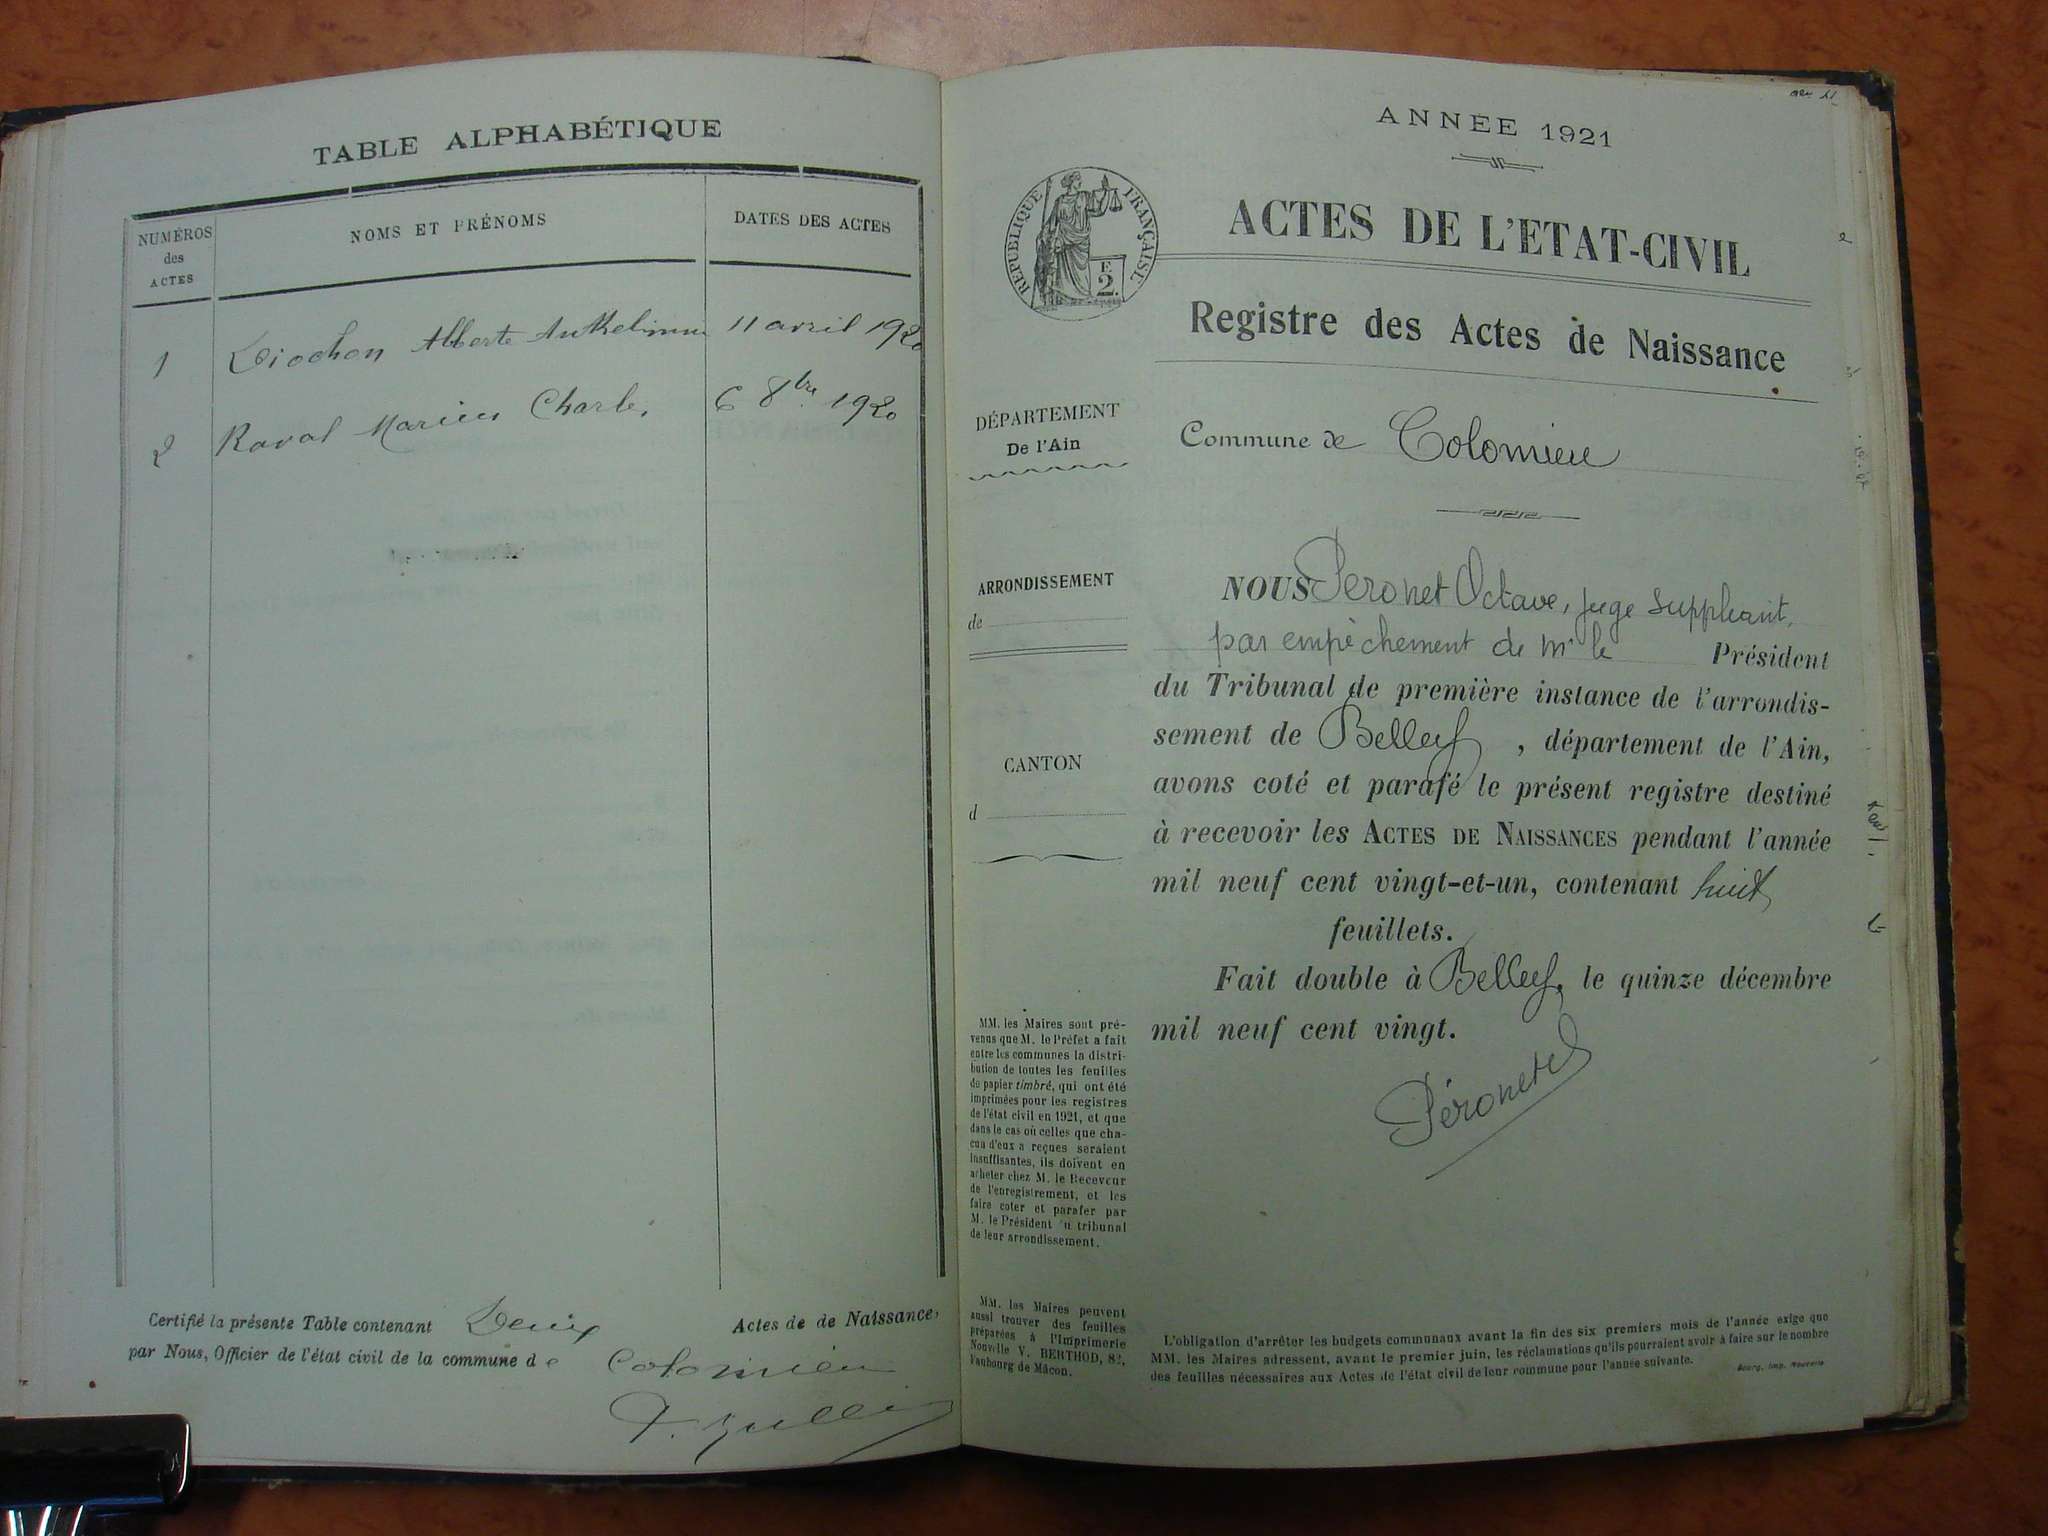 TABLE ALPHABÉTIQUE
NUMÉROS
des
ACTES
NOMS ET PRÉNOMS
DATES DES ACTES
1 Alberte 11 avril 1920
2 Raval Marius Charles 6 8bre 1920
Certifié la présente Table contenant Deux Actes de de Naissance
par Nous, Officier de l'état civil de la commune de Colomieu
ANNEE 1921
RÉPUBLIQUE FRANÇAISE
E
2.
ACTES DE L'ETAT-CIVIL
Registre des Actes de Naissance
DÉPARTEMENT
De l'Ain
Commune de Colomieu
ARRONDISSEMENT
de
CANTON
d
NOUS Peronet Octave, juge suppléant,
par empêchement de Mr le Président
du Tribunal de première instance de l'arrondis-
sement de Belley, département de l'Ain,
avons coté et parafé le présent registre destiné
à recevoir les ACTES DE NAISSANCES pendant l'année
mil neuf cent vingt-et-un, contenant huit
feuillets.
Fait double à Belley, le quinze décembre
mil neuf cent vingt.
Péronet
MM. les Maires sont pré-
venus que M. le Préfet a fait
entre les communes la distri-
bution de toutes les feuilles
du papier timbré, qui ont été
imprimées pour les registres
de l'état civil en 1921, et que
dans le cas où celles que cha-
cun d'eux a reçues seraient
insuffisantes, ils doivent en
acheter chez M. le Receveur
de l'enregistrement, et les
faire coter et parafer par
M. le Président u tribunal
de leur arrondissement.
MM. les Maires peuvent
aussi trouver des feuilles
préparées à l'Imprimerie
Nouvelle V. BERTHOD, 82,
Faubourg de Mâcon.
L'obligation d'arrêter les budgets communaux avant la fin des six premiers mois de l'année exige que
MM. les Maires adressent, avant le premier juin, les réclamations qu'ils pourraient avoir à faire sur le nombre
des feuilles nécessaires aux Actes de l'état civil de leur commune pour l'année suivante.
Bourg, Imp. Nouvelle